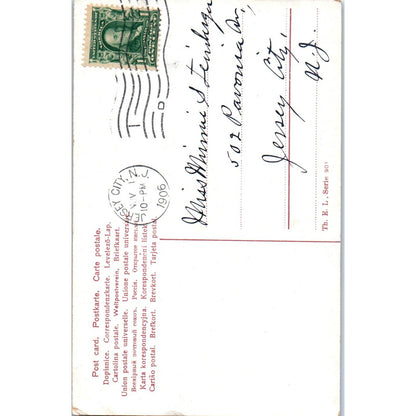 Post card. Postkarte. Carte postale.
Dopisnice. Correspondenzkarte. Levelező-Lap.
Cartolina postale. Weltpostverein. Briefkaart.
Union postale universelle. Unione postale universale
Всемірный почтовый союзъ. Россія. Открытое письмо
Karta korespondencyjna. Korespondenční lístek
Cartão postal. Brefkort. Brevkort. Tarjeta postal.
JERSEY CITY, N.J.
10-PM
1906
Miss Minnie Steinberger
502 Pavonia Av,
Jersey City,
N.J.
Th. E. L., Serie 901